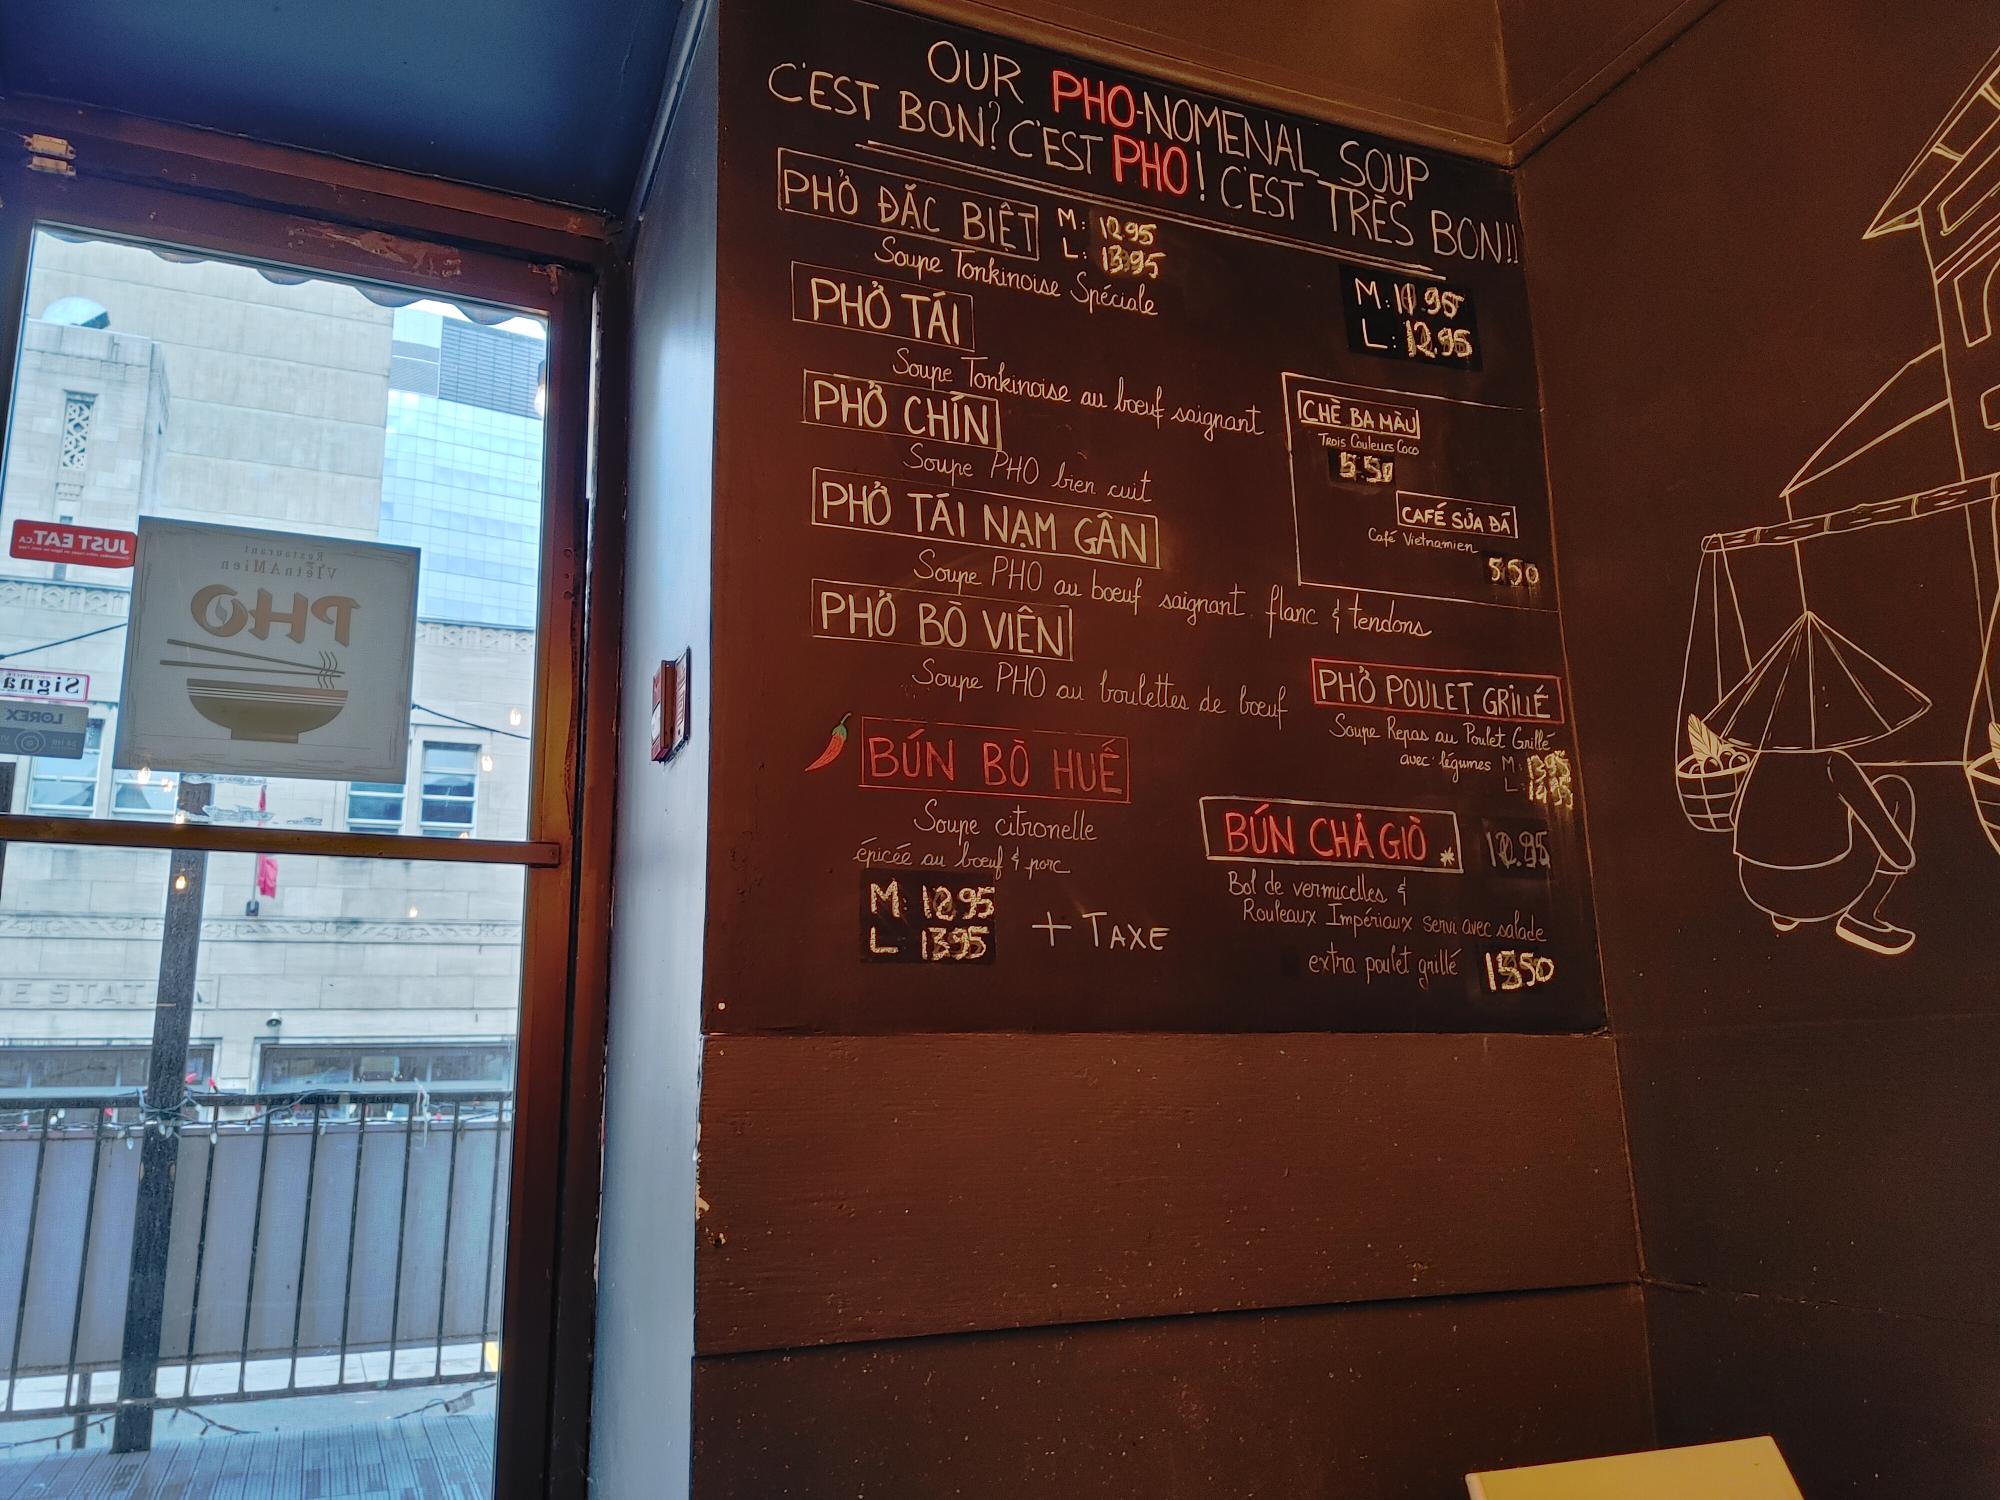 OUR PHO-NOMENAL SOUP
C'EST BON? C'EST PHO! C'EST TRÈS BON!!
PHỞ ĐẶC BIỆT
M: 12.95
L: 13.95
Soupe Tonkinoise Spéciale
PHỞ TÁI
Soupe Tonkinoise au bœuf saignant
M: 11.95
L: 12.95
PHỞ CHÍN
Soupe PHO bien cuit
PHỞ TÁI NẠM GÂN
Soupe PHO au boeuf saignant. flanc & tendons
PHỞ BÒ VIÊN
Soupe PHO au boulettes de bœuf
CHÈ BA MÀU
Trois Couleurs Coco
5.50
CAFÉ SỮA ĐÁ
Café Vietnamien
5.50
PHỞ POULET GRILLÉ
Soupe Repas au Poulet Grillé
avec légumes M: 13.95
L: 14.95
BÚN BÒ HUẾ
Soupe citronelle
épicée au bœuf & porc
M: 12.95
L: 13.95
+ TAXE
BÚN CHẢ GIÒ * 12.95
Bol de vermicelles &
Rouleaux Impériaux servi avec salade
extra poulet grillé 15.50
JUST EAT.CA
Restaurant
VIetnAMien
PHO
Signa
LOREX
24 HR
E STAT